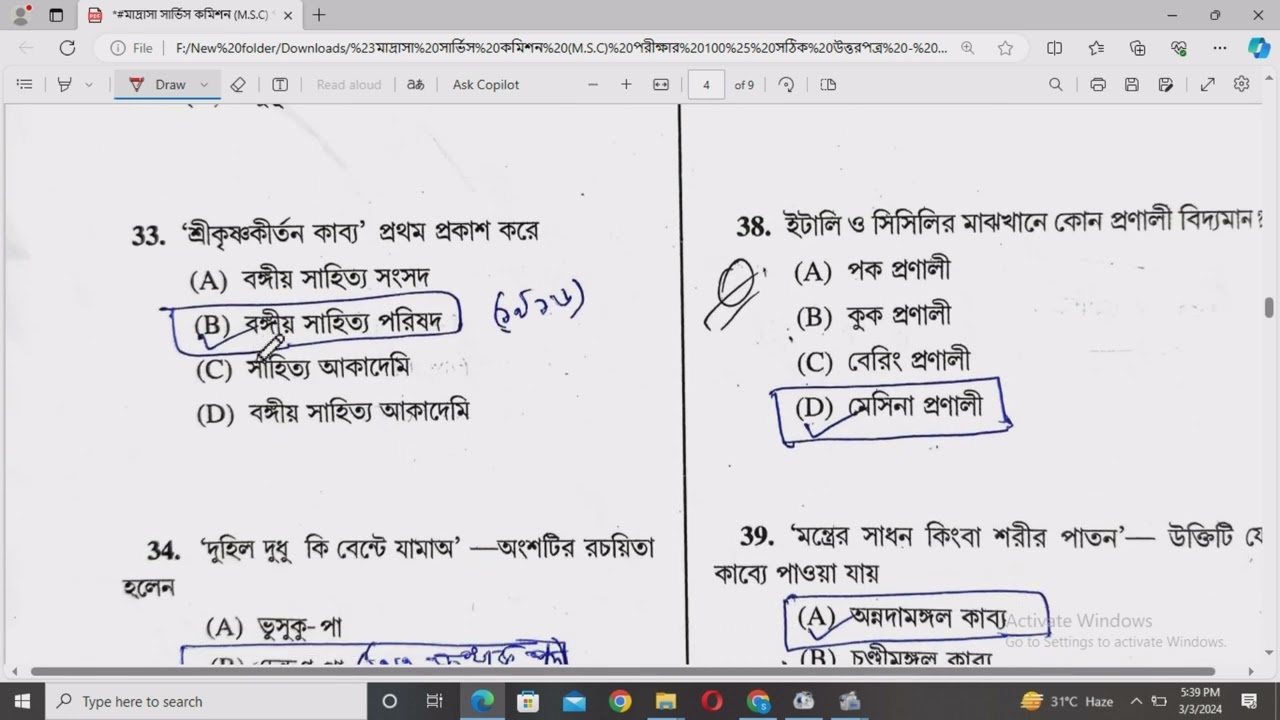 *#মাদ্রাসা সার্ভিস কমিশন (M.S.C)
File
F:/New%20folder/Downloads/%23মাদ্রাসা%20সার্ভিস%20কমিশন%20(M.S.C)%20পরীক্ষার%20100%25%20সঠিক%20উত্তরপত্র%20-%20...
Draw
Read aloud
aあ
Ask Copilot
4 of 9
33. ‘শ্রীকৃষ্ণকীর্তন কাব্য’ প্রথম প্রকাশ করে
(A) বঙ্গীয় সাহিত্য সংসদ
(B) বঙ্গীয় সাহিত্য পরিষদ
(C) সাহিত্য আকাদেমি
(D) বঙ্গীয় সাহিত্য আকাদেমি
34. ‘দুহিল দুধু কি বেন্টে যামাঅ’ —অংশটির রচয়িতা
হলেন
(A) ভুসুকু-পা
38. ইটালি ও সিসিলির মাঝখানে কোন প্রণালী বিদ্যমান ?
(A) পক প্রণালী
(B) কুক প্রণালী
(C) বেরিং প্রণালী
(D) মেসিনা প্রণালী
39. ‘মন্ত্রের সাধন কিংবা শরীর পাতন’— উক্তিটি যে
কাব্যে পাওয়া যায়
(A) অন্নদামঙ্গল কাব্য
(B) চণ্ডীমঙ্গল কাব্য
Activate Windows
Go to Settings to activate Windows.
Type here to search
31°C Haze
5:39 PM
3/3/2024